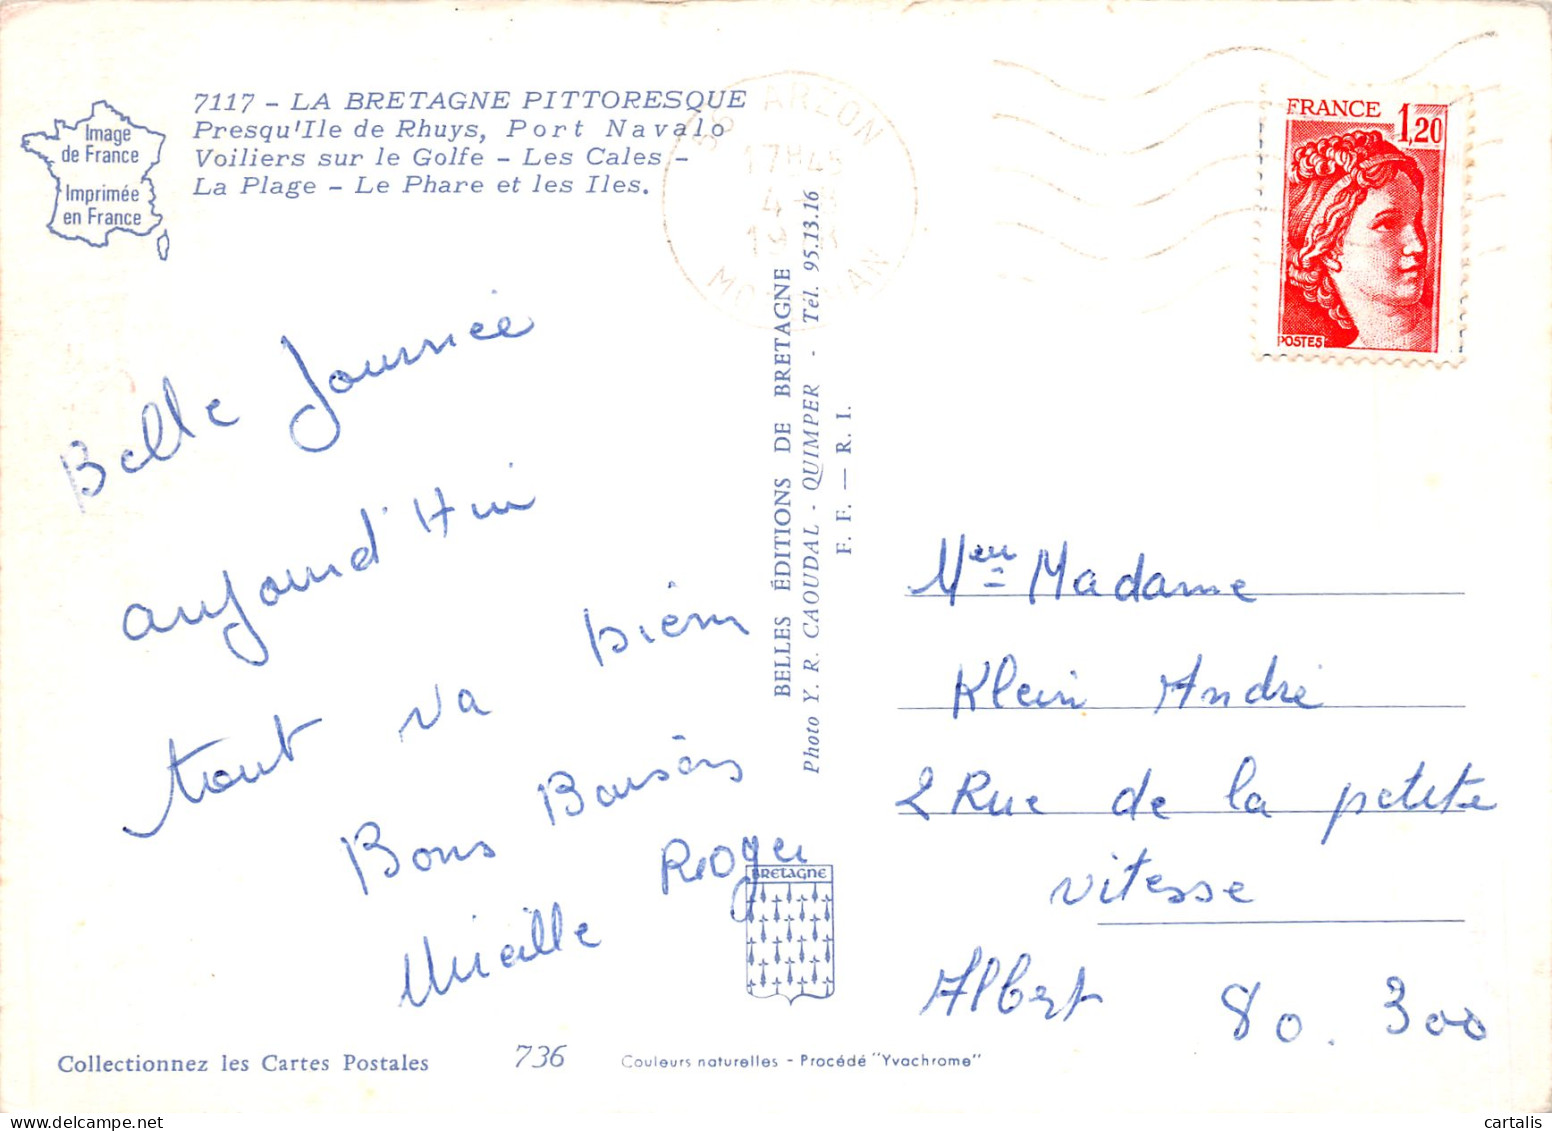 7117 - LA BRETAGNE PITTORESQUE
Presqu'Ile de Rhuys, Port Navalo
Voiliers sur le Golfe - Les Cales -
La Plage - Le Phare et les Iles.
Image
de France
Imprimée
en France
Belle Journée
aujourd'Hui
tout va bien
Bons Baisers
Mireille Roger
BELLES ÉDITIONS DE BRETAGNE
Photo Y. R. CAOUDAL - QUIMPER - Tél. 95.13.16
F. F. — R. I.
BRETAGNE
ARZON
17H45
4
FRANCE 1,20
POSTES
Meur Madame
Klein André
2 Rue de la petite
vitesse
Albert 80.300
Collectionnez les Cartes Postales
736
Couleurs naturelles - Procédé "Yvachrome"
cartalis